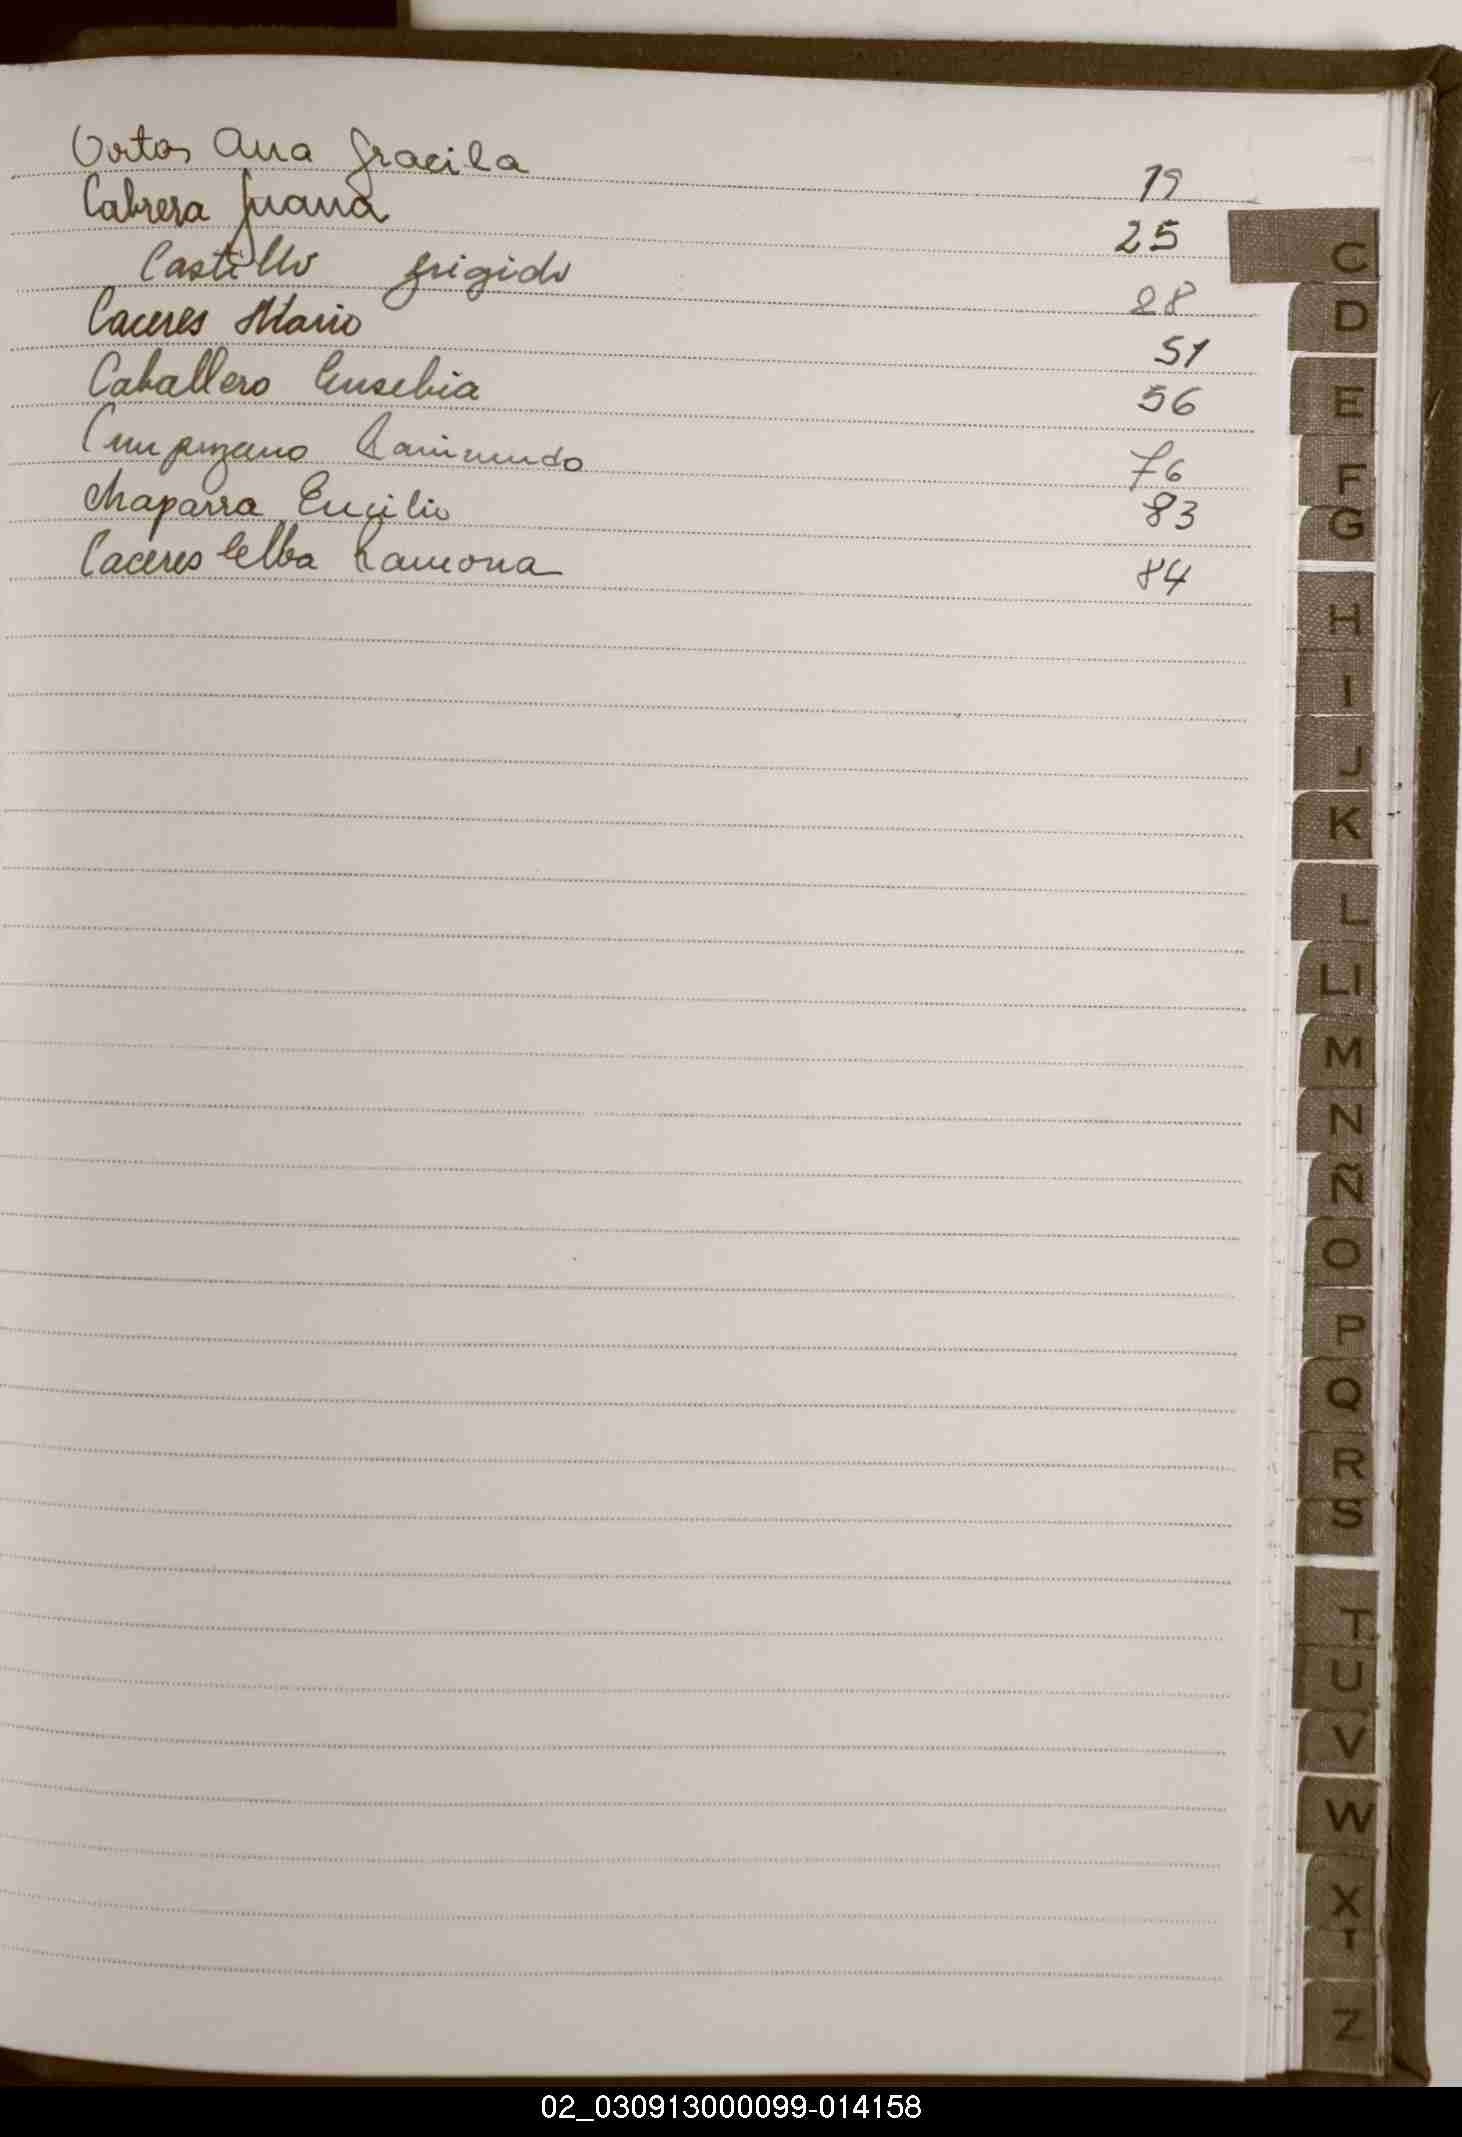 Ana Gracila 19
Cabrera Juana 25
Castillo frigido 28
Caceres Mario 51
Caballero Eusebia 56
Raimundo 76
Chaparra Eucilio 83
Caceres Elba Ramona 84
C
D
E
F
G
H
I
J
K
L
Ll
M
N
Ñ
O
P
Q
R
S
T
U
V
W
X
Z
02_030913000099-014158